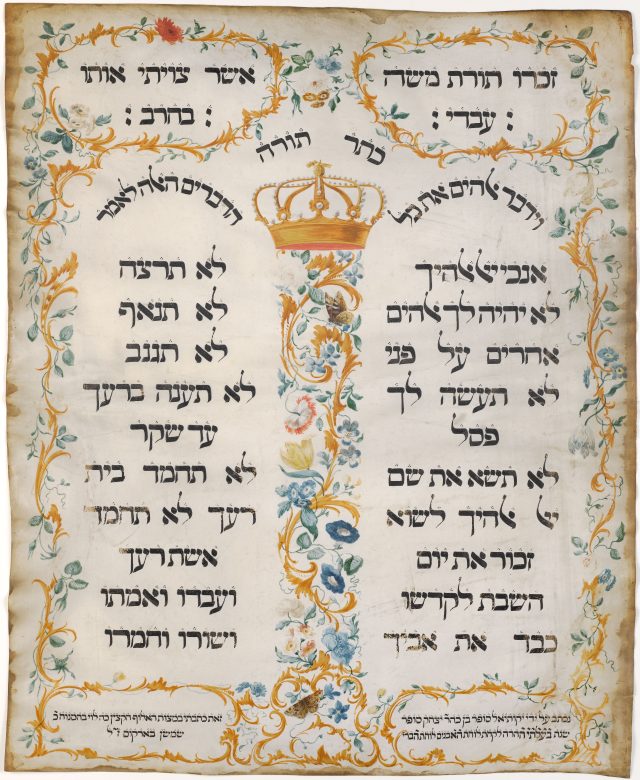 זכרו תורת משה
: עבדי :
אשר צויתי אותו
: בחרב :
כתר תורה
וידבר אלהים את כל
הדברים האלה לאמר
אנכי יי אלהיך
לא יהיה לך אלהים
אחרים על פני
לא תעשה לך
פסל
לא תשא את שם
יי אלהיך לשוא
זכור את יום
השבת לקדשו
כבד את אביך
לא תרצח
לא תנאף
לא תגנב
לא תענה ברעך
עד שקר
לא תחמד בית
רעך לא תחמד
אשת רעך
ועבדו ואמתו
ושורו וחמרו
נכתב על ידי יקותיאל סופר בן כהר יצחק סופר
שנת בעלתי ההרה לקחת לוחת האבנים לוחת הברי
זאת כתבתי במצות האלוף הקצין כה לוי
שמשן בארקום ז"ל